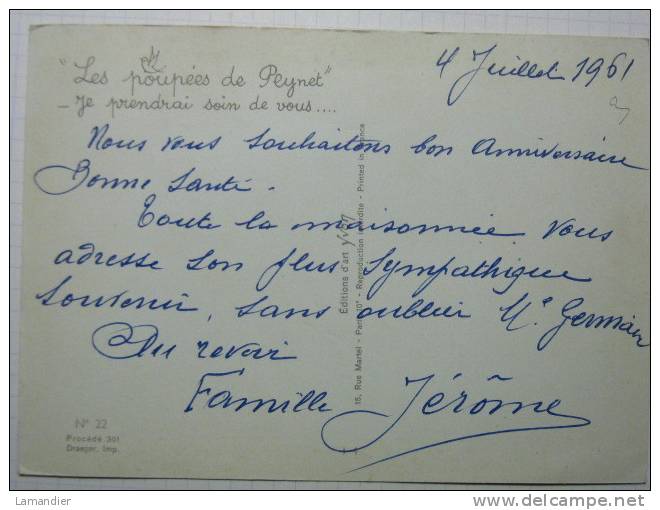 "Les poupées de Peynet"
_ Je prendrai soin de vous....
4 Juillet 1961
Nous vous souhaitons bon Anniversaire
Bonne Santé.
Toute la maisonnée vous
adresse son plus sympathique
souvenir, sans oublier Mr Germain
Au revoir
Famille Jérôme
Editions d'art yvon
15, Rue Martel - Paris 10e - Reproduction interdite - Printed in France
N° 22
Procédé 301
Draeger, Imp.
Lamandier
delcampe.net